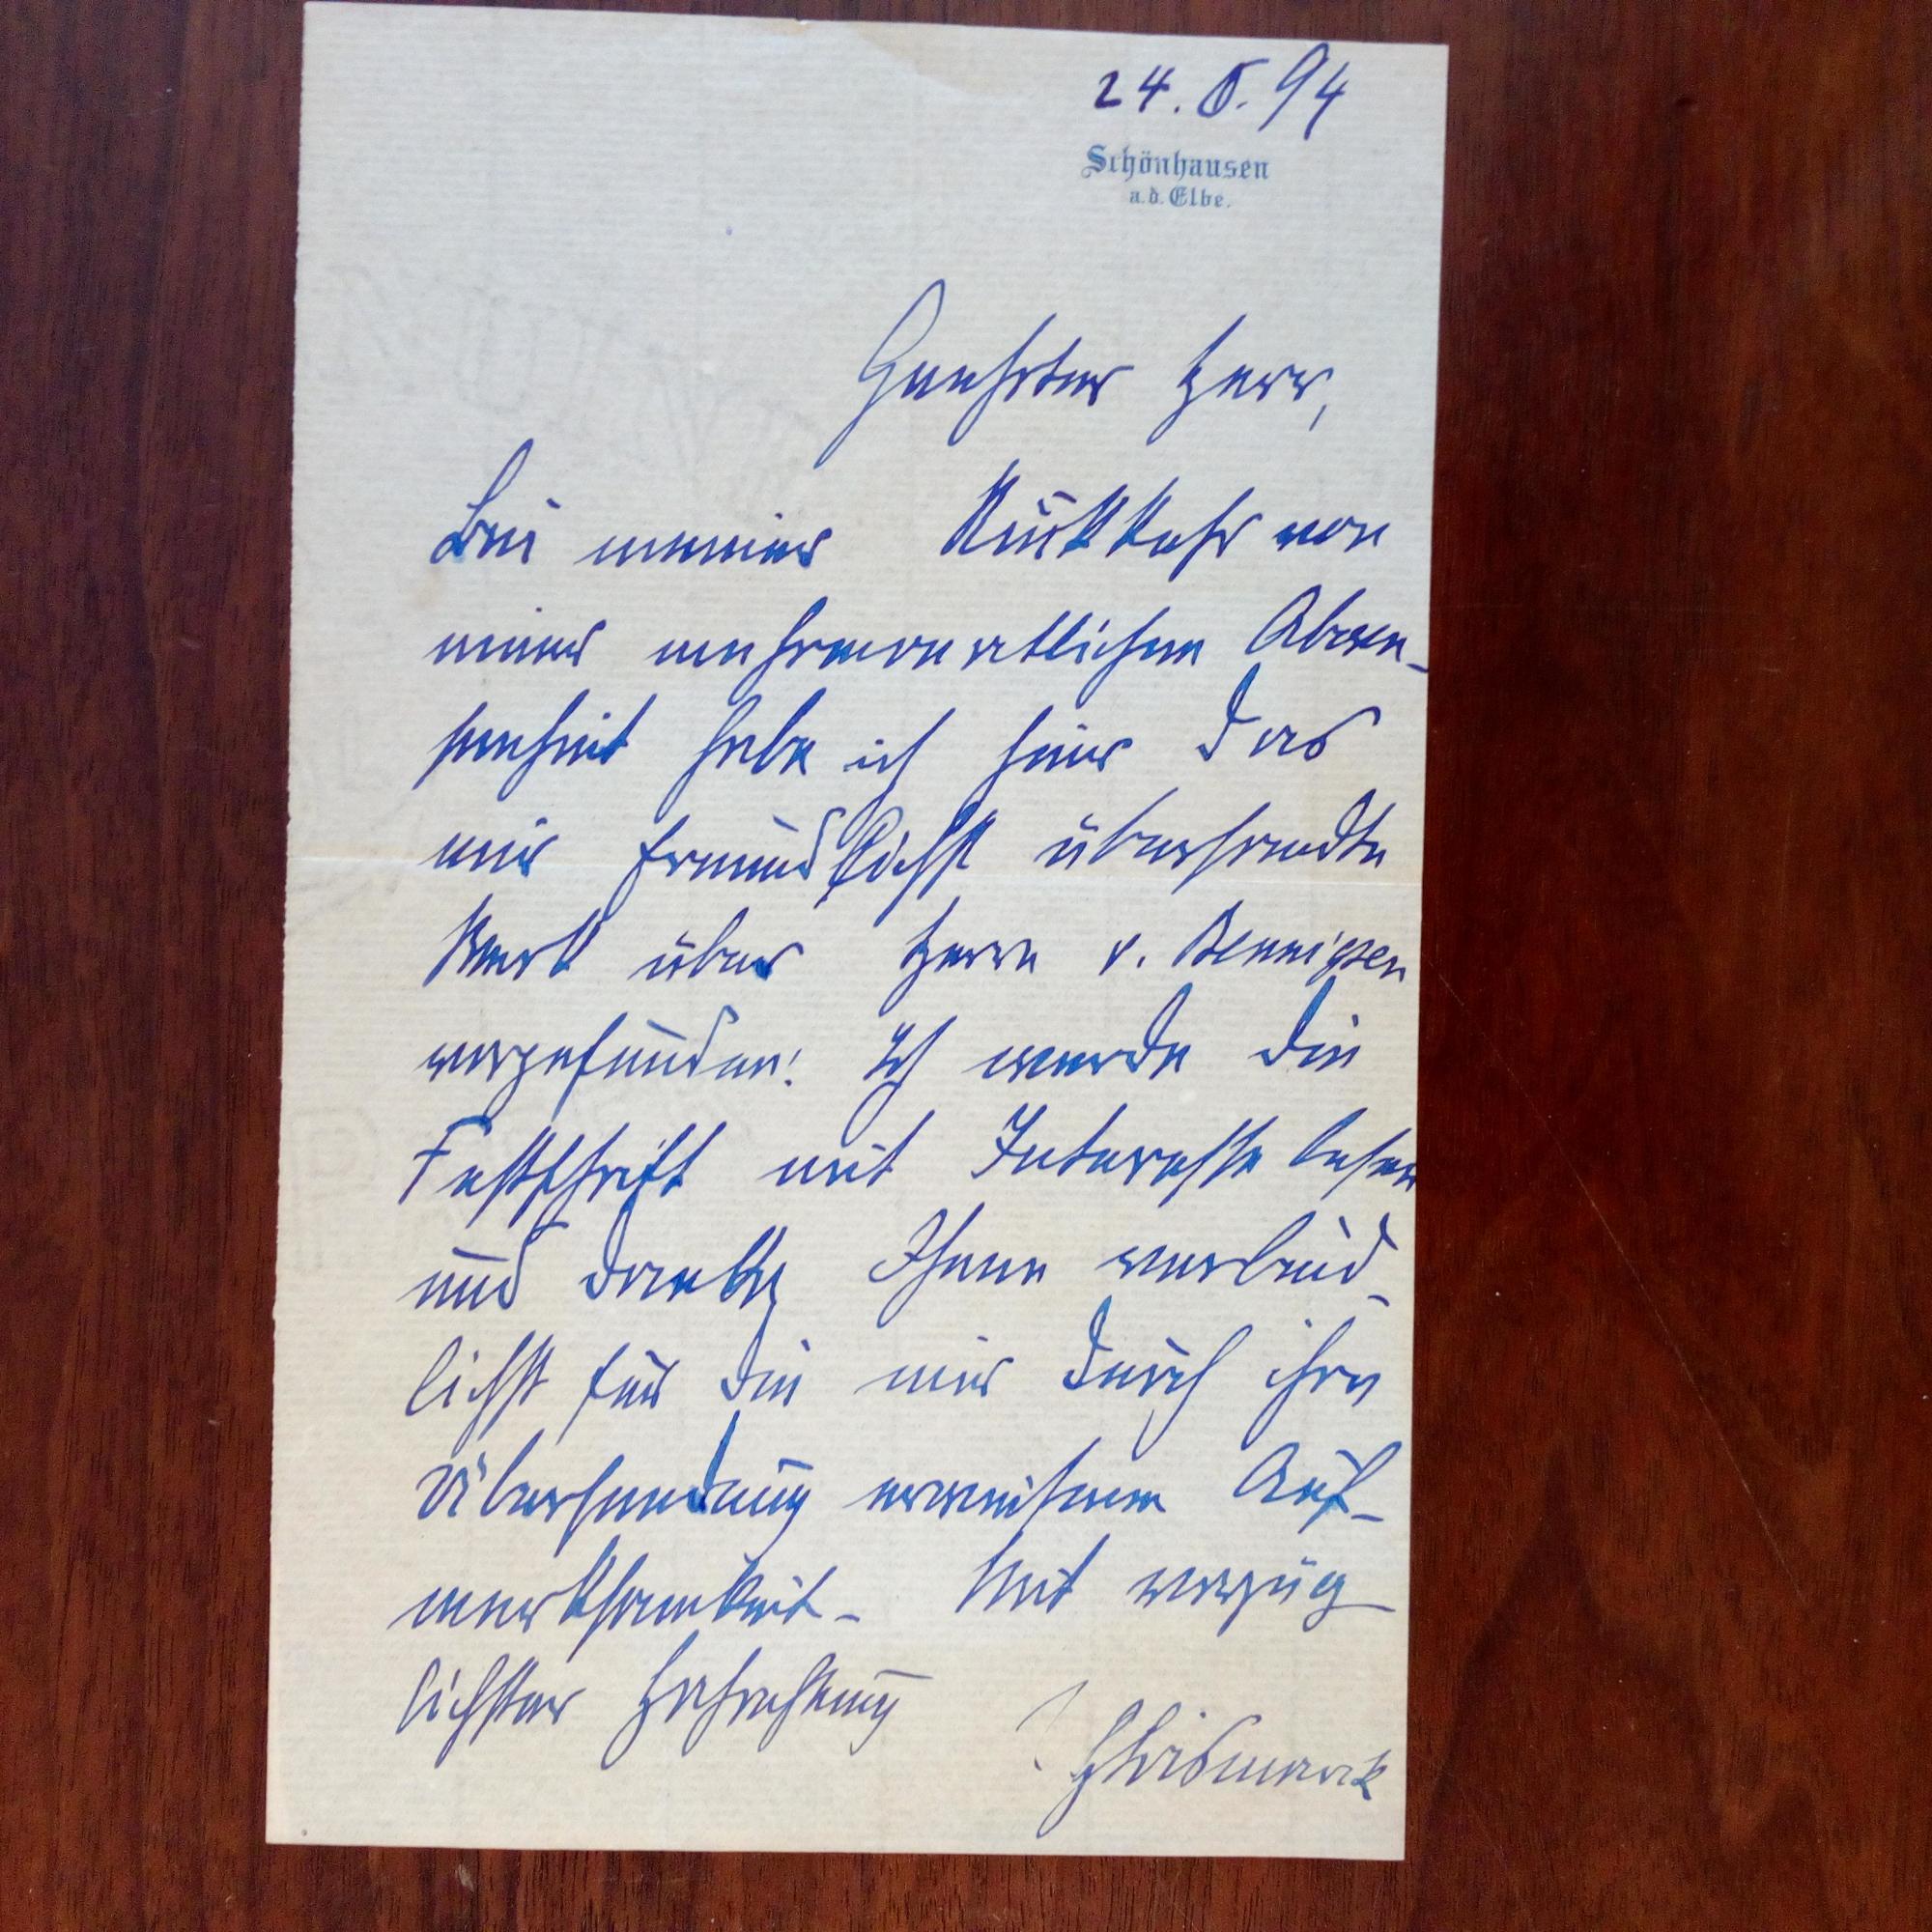 24. 8. 94
Schönhausen
a. d. Elbe.
Geehrter Herr,
Bei meiner Rückkehr von
einer mehrmonatlichen Abwe-
senheit habe ich hier das
mir freundlichst übersandte
Werk über Herrn v. Bennigsen
vorgefunden: Ich werde die
Festschrift mit Interesse lesen
und danke Ihnen verbind-
lichst für die mir durch ihre
Übersendung erwiesene Auf-
merksamkeit- Mit vorzüg-
lichster Hochachtung
HBismarck